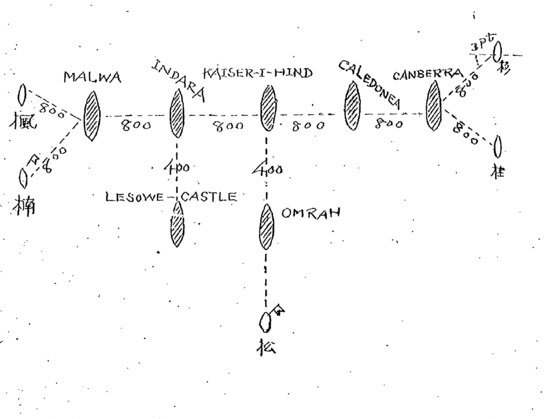 3pt
MALWA
INDARA
KAISER-I-HIND
CALEDONEA
CANBERRA
杉
楓
800
800
800
800
800
800
800
800
楠
桂
400
400
LESOWE-CASTLE
OMRAH
松